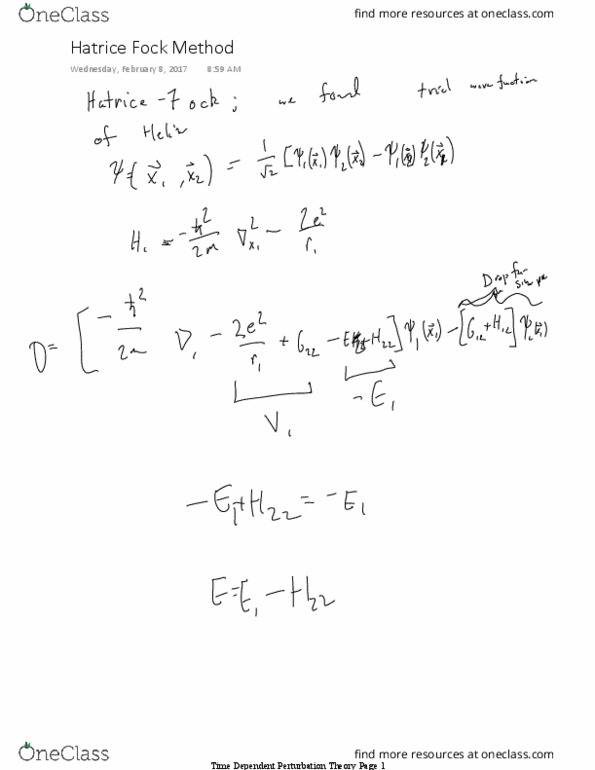 OneClass find more resources at oneclass.com
Hatrice Fock Method
Wednesday, February 8, 2017 8:59 AM
Hatrice-Fock; we found trial wave function
of Helium
Ψ(x⃗₁, x⃗₂) = 1/√2 [Ψ₁(x⃗₁)Ψ₂(x⃗₂) − Ψ₁(x⃗₂)Ψ₂(x⃗₁)]
H₁ = −ħ²/2m ∇²ₓ₁ − 2e²/r₁
Drop for
0 = [−ħ²/2m ∇₁ − 2e²/r₁ + G₂₂ − E + H₂₂] Ψ₁(x⃗₁) − [G₁₂ + H₁₂] Ψ₂(x⃗₁)
V₁ −E₁
−E + H₂₂ = −E₁
E = E₁ − H₂₂
OneClass find more resources at oneclass.com
Time Dependent Perturbation Theory Page 1